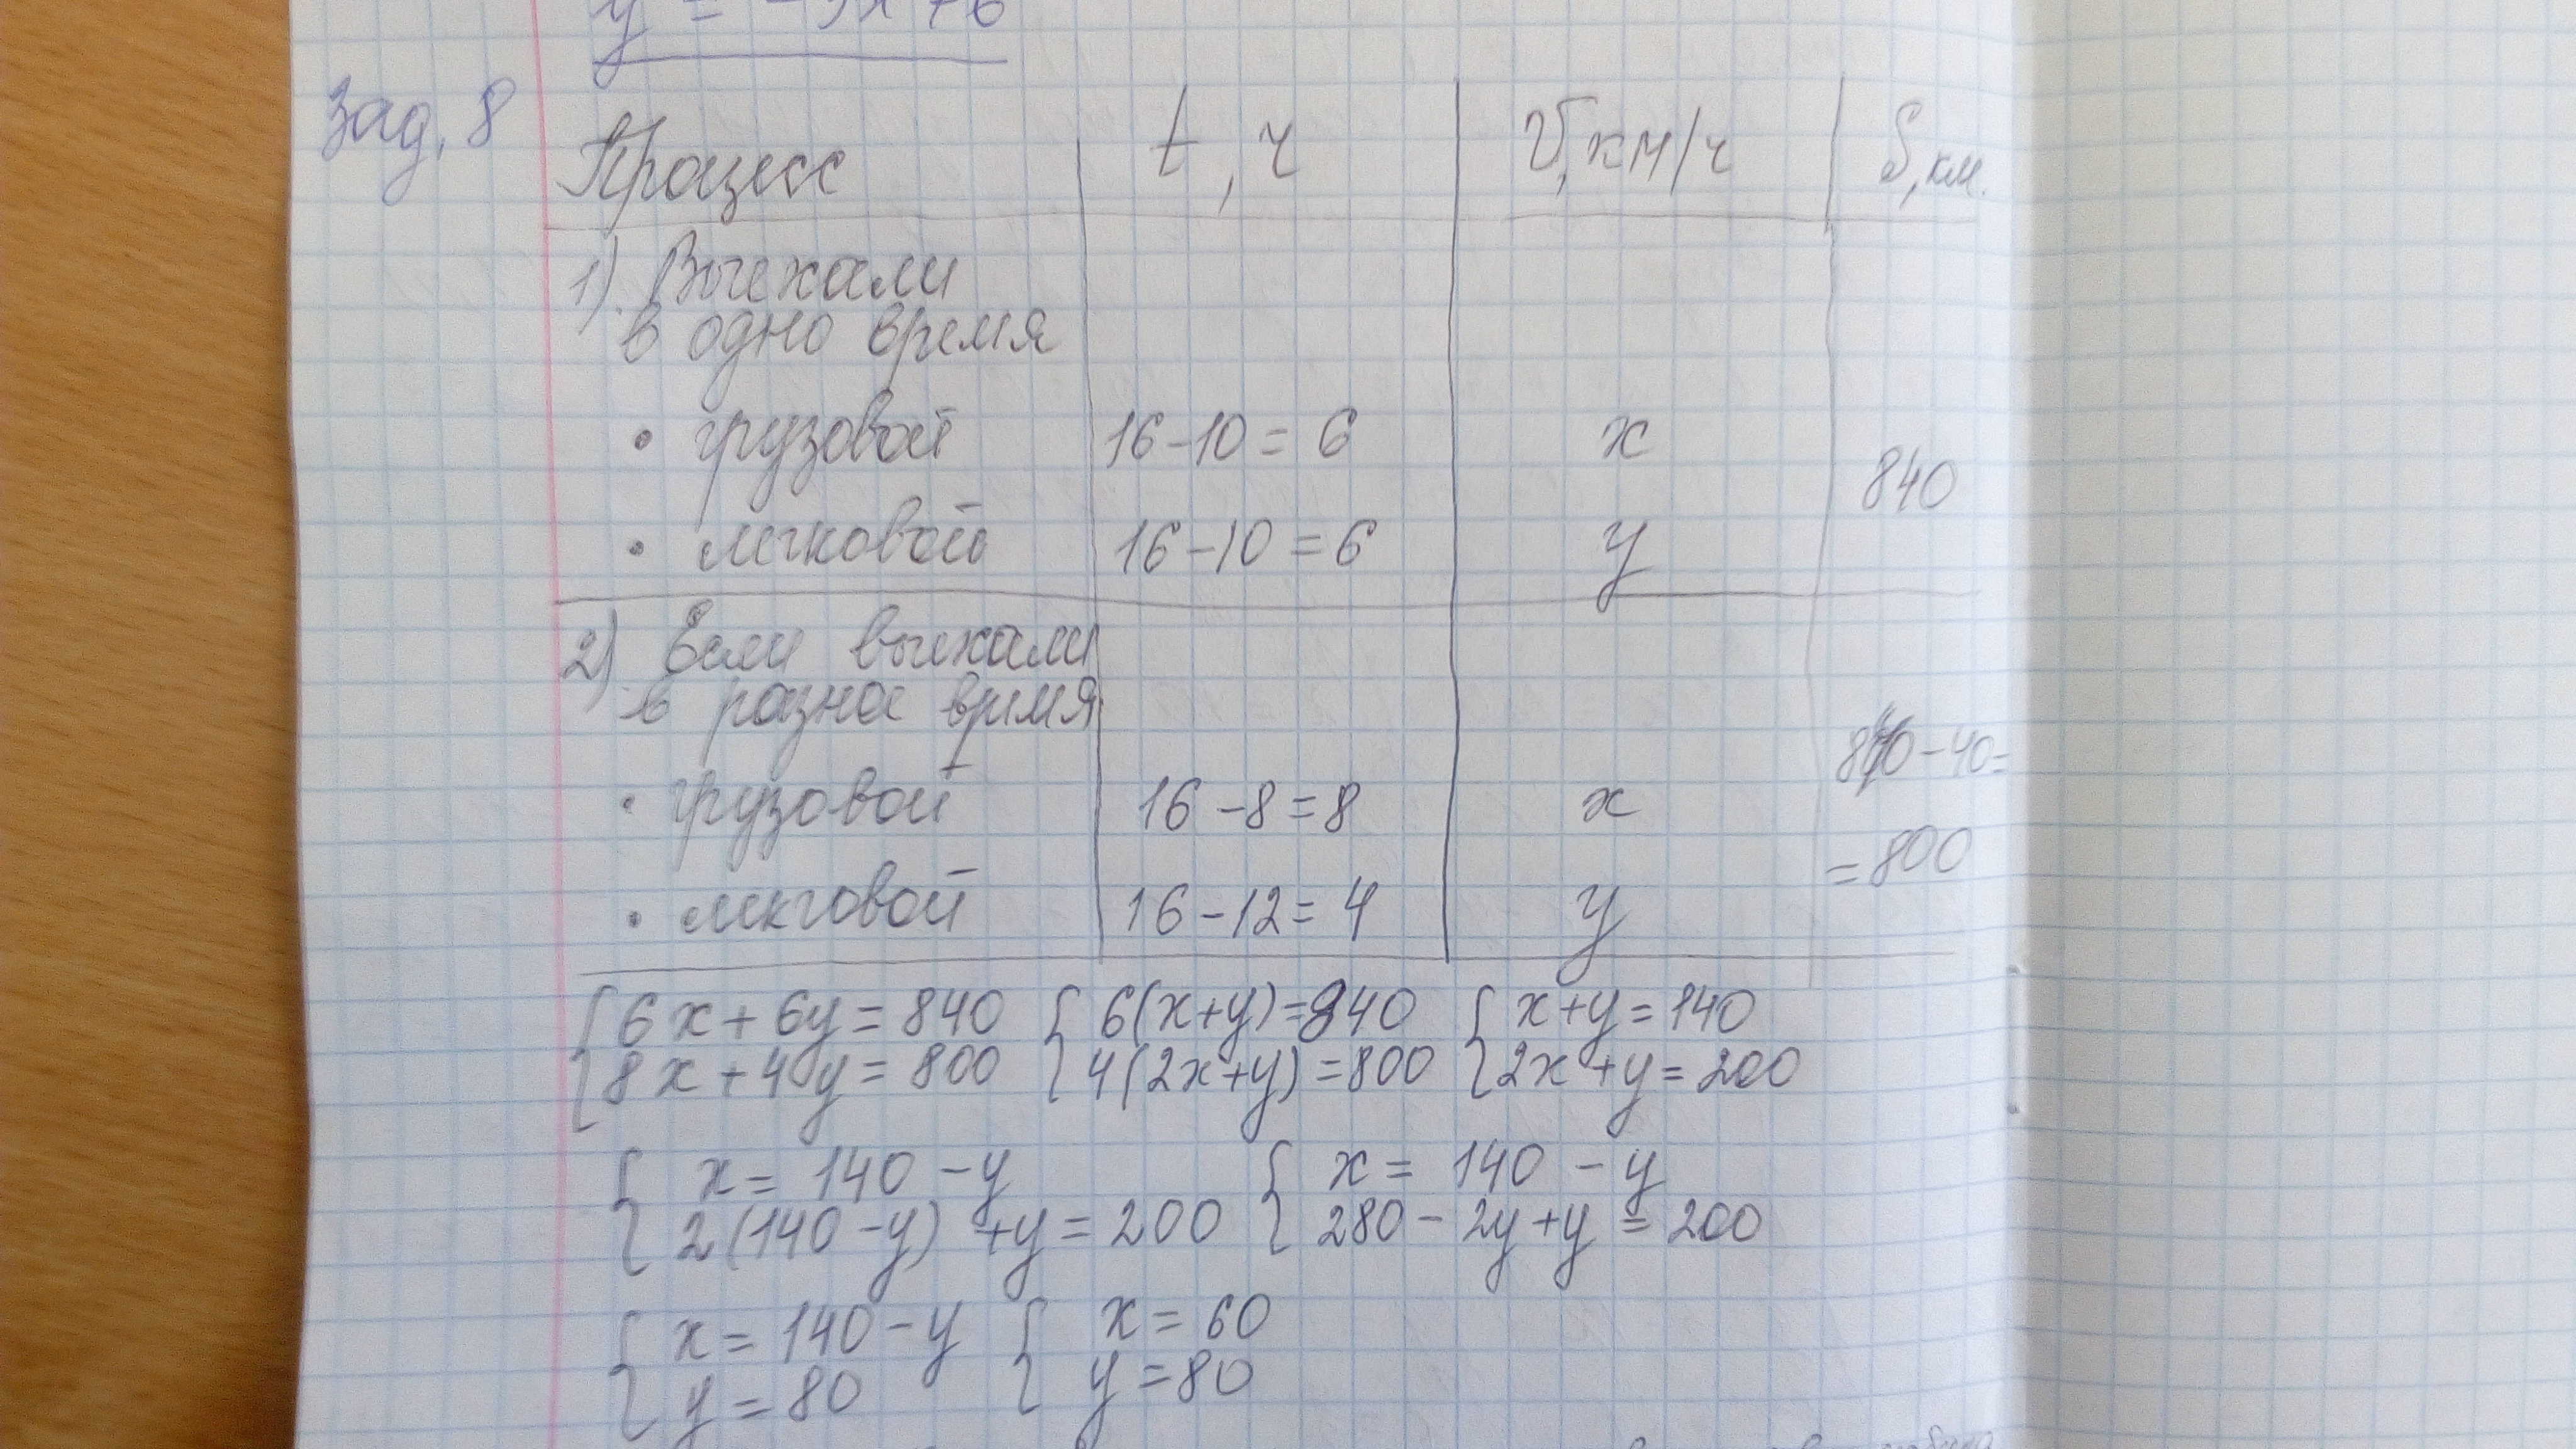 y = -3x+6
Зад. 8
Процесс t, ч V, км/ч S, км.
1) Выехали
в одно время
• грузовой 16-10 = 6 x
840
• легковой 16-10 = 6 y
2) Если выехали
в разное время
840-40=
• грузовой 16-8=8 x
=800
• лекговой 16-12=4 y
{6x+6y=840 {6(x+y)=840 {x+y=140
{8x+4y=800 {4(2x+y)=800 {2x+y=200
{x=140-y {x=140-y
{2(140-y)+y=200 {280-2y+y=200
{x=140-y {x=60
{y=80 {y=80